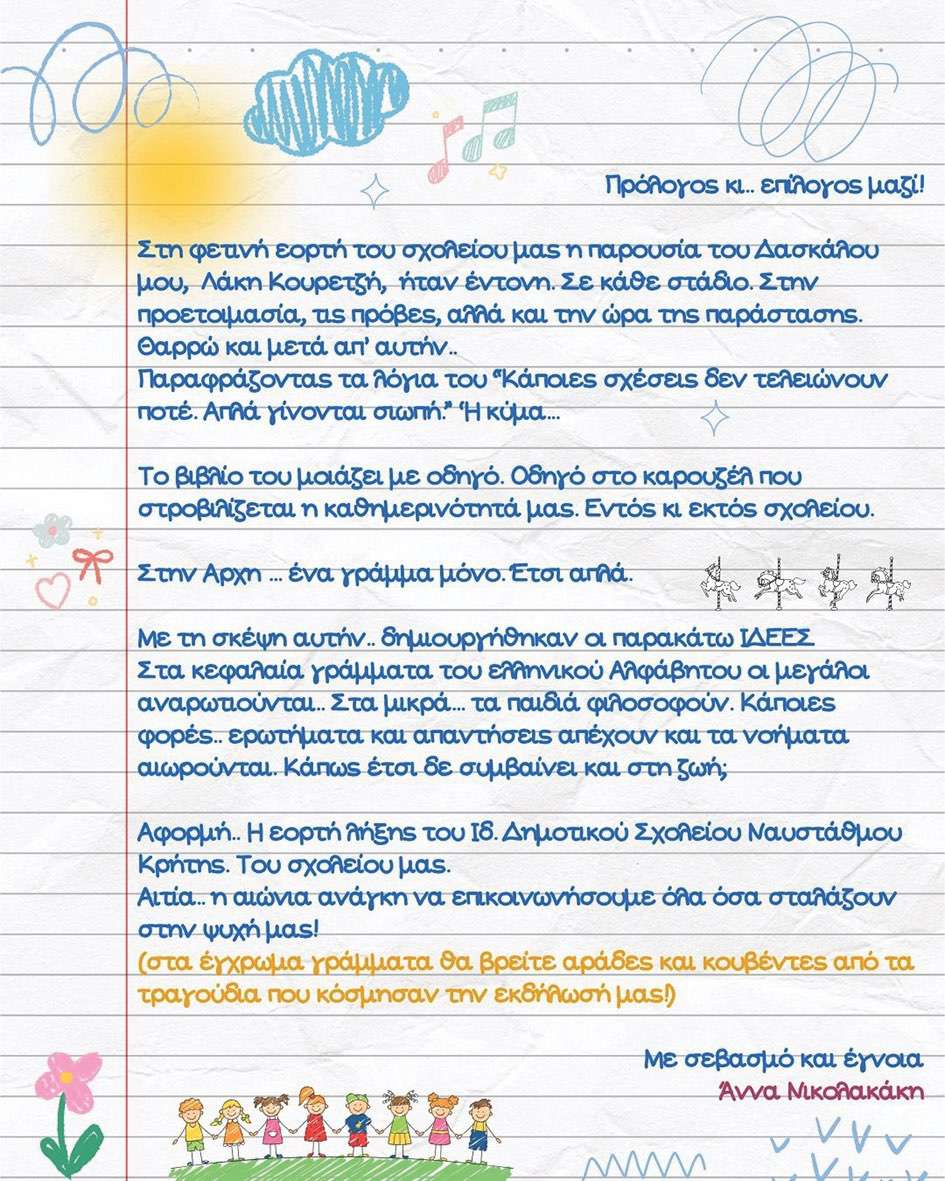 Πρόλογος κι.. επίλογος μαζί!
Στη φετινή εορτή του σχολείου μας η παρουσία του Δασκάλου
μου, Λάκη Κουρετζή, ήταν έντονη. Σε κάθε στάδιο. Στην
προετοιμασία, τις πρόβες, αλλά και την ώρα της παράστασης.
Θαρρώ και μετά απ' αυτήν..
Παραφράζοντας τα λόγια του "Κάποιες σχέσεις δεν τελειώνουν
ποτέ. Απλά γίνονται σιωπή." Ή κύμα...
Το βιβλίο του μοιάζει με οδηγό. Οδηγό στο καρουζέλ που
στροβιλίζεται η καθημερινότητά μας. Εντός κι εκτός σχολείου.
Στην Αρχη ... ένα γράμμα μόνο. Έτσι απλά.
Με τη σκέψη αυτήν.. δημιουργήθηκαν οι παρακάτω ΙΔΕΕΣ
Στα κεφαλαία γράμματα του ελληνικού Αλφάβητου οι μεγάλοι
αναρωτιούνται.. Στα μικρά... τα παιδιά φιλοσοφούν. Κάποιες
φορές.. ερωτήματα και απαντήσεις απέχουν και τα νοήματα
αιωρούνται. Κάπως έτσι δε συμβαίνει και στη ζωή;
Αφορμή.. Η εορτή λήξης του Ιδ. Δημοτικού Σχολείου Ναυστάθμου
Κρήτης. Του σχολείου μας.
Αιτία.. η αιώνια ανάγκη να επικοινωνήσουμε όλα όσα σταλάζουν
στην ψυχή μας!
(στα έγχρωμα γράμματα θα βρείτε αράδες και κουβέντες από τα
τραγούδια που κόσμησαν την εκδήλωσή μας!)
Με σεβασμό και έγνοια
Άννα Νικολακάκη